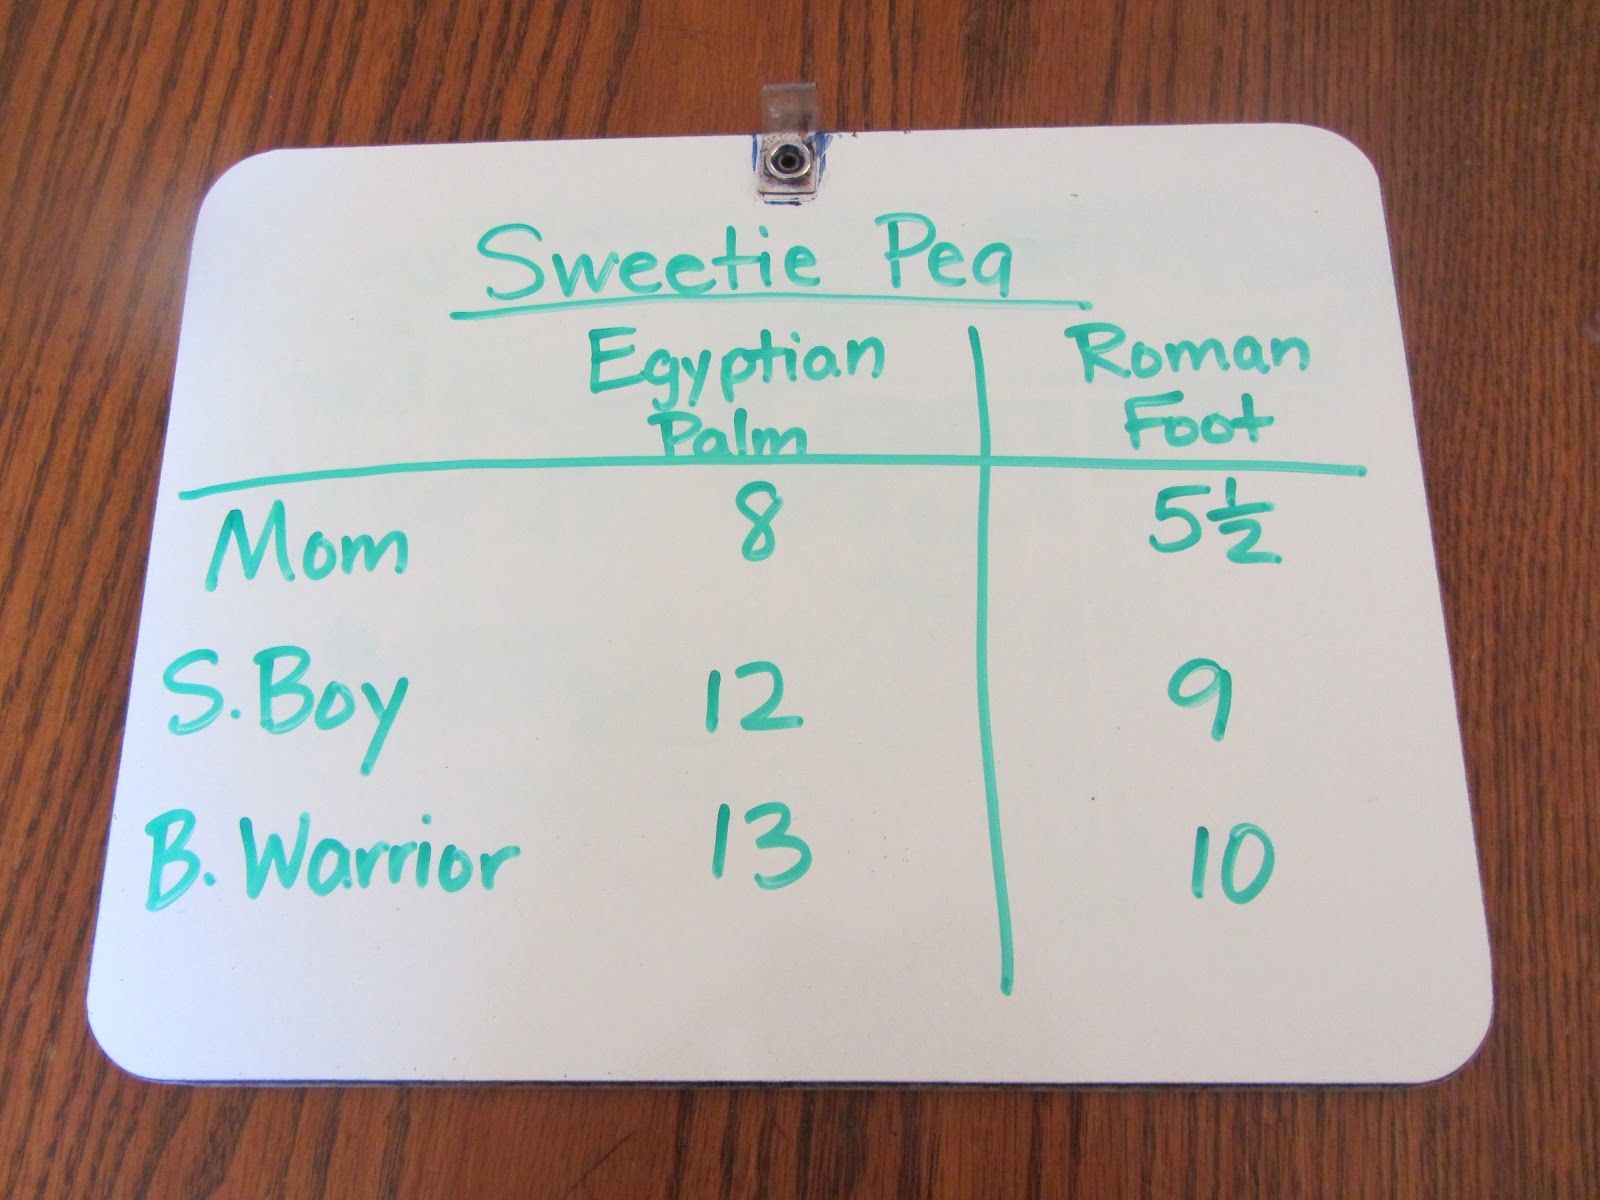 Sweetie Pea
Egyptian Palm Roman Foot
Mom 8 5½
S. Boy 12 9
B. Warrior 13 10